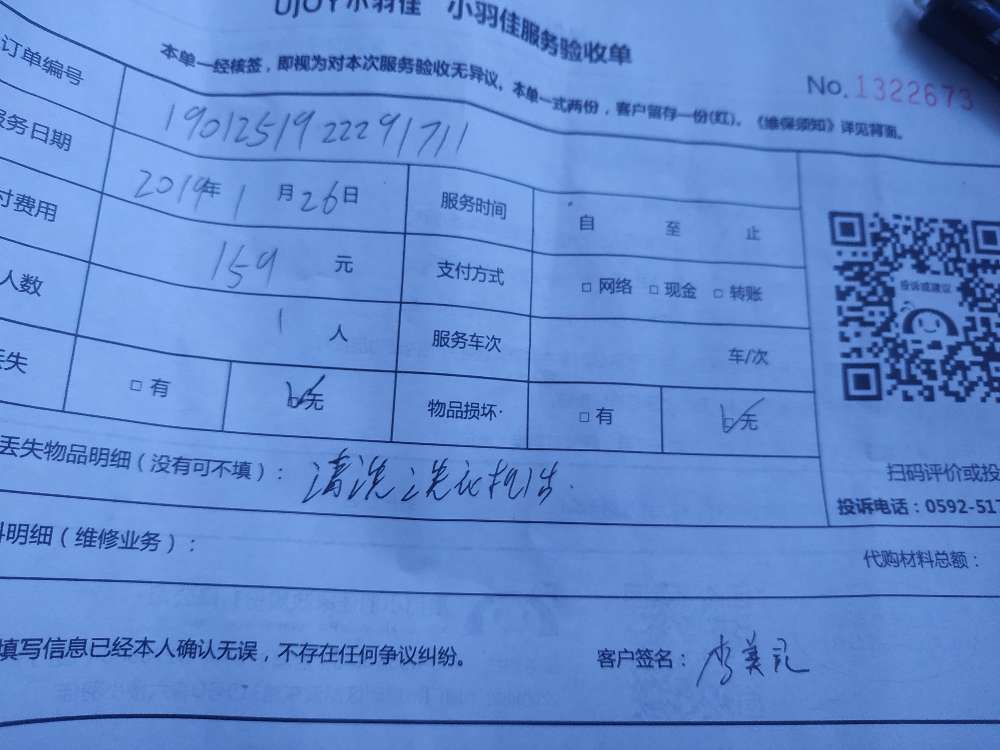 UJOY小羽佳 小羽佳服务验收单
本单一经核签，即视为对本次服务验收无异议。本单一式两份，客户留存一份(红)。《维保须知》详见背面。
No.1322673
订单编号 1901251922291711
服务日期 2019年1月26日 服务时间 自 至 止
付费用 159元 支付方式 □网络 □现金 □转账
人数 1人 服务车次 车/次
丢失 □有 ☑无 物品损坏 □有 ☑无
投诉或建议
丢失物品明细（没有可不填）： 清洗洗衣机1台.
扫码评价或投
投诉电话：0592-517
料明细（维修业务）： 代购材料总额：
填写信息已经本人确认无误，不存在任何争议纠纷。 客户签名：李美